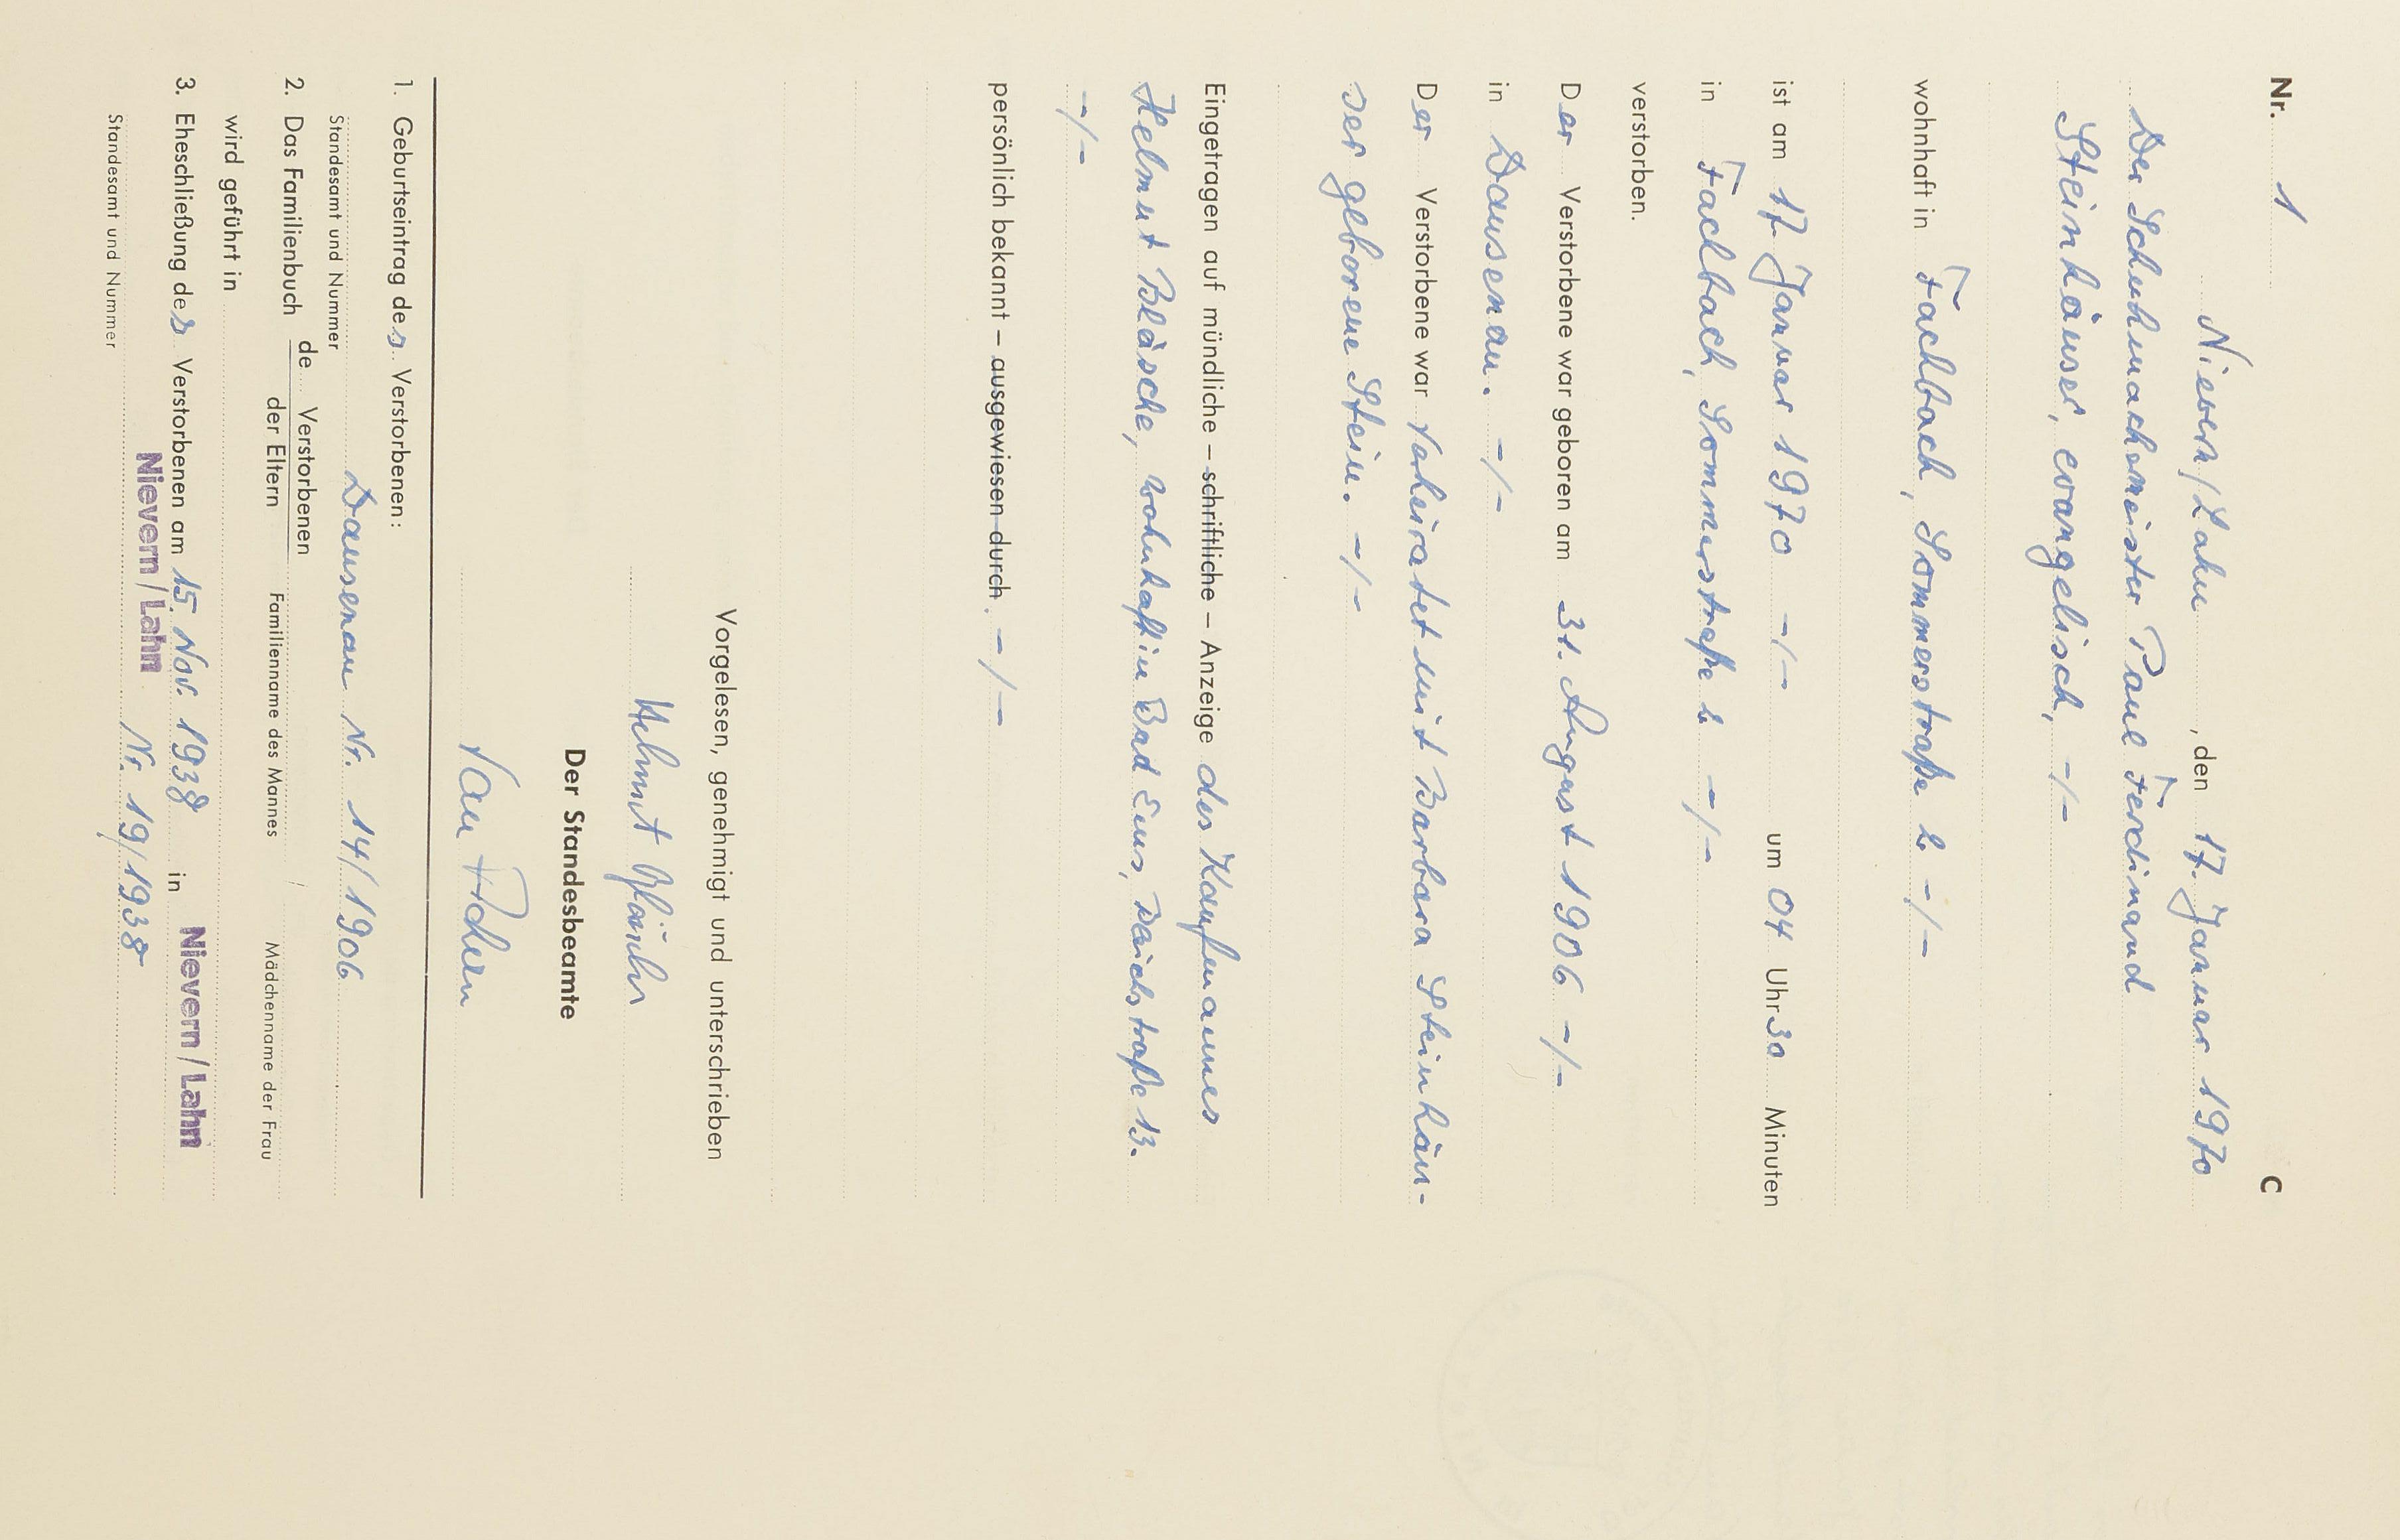 Nr. 1 C
Nievern/Lahn, den 17. Januar 1970
Der Schuhmachermeister Paul Ferdinand
Steinhäuser, evangelisch, -/-
wohnhaft in Fachbach, Sommerstraße 2 -/-
ist am 17. Januar 1970 -/- um 04 Uhr 30 Minuten
in Fachbach, Sommerstraße 2 -/-
verstorben.
Der Verstorbene war geboren am 31. August 1906 -/-
in Dausenau. -/-
Der Verstorbene war verheiratet mit Barbara Steinhäu-
ser geborene Stein. -/-
Eingetragen auf mündliche – schriftliche – Anzeige des Kaufmannes
Helmut Bläsche, wohnhaft in Bad Ems, 13.
-/-
persönlich bekannt – ausgewiesen durch. -/-
Vorgelesen, genehmigt und unterschrieben
Helmut
Der Standesbeamte
1. Geburtseintrag des Verstorbenen:
Dausenau Nr. 14/1906
Standesamt und Nummer
2. Das Familienbuch de Verstorbenen
der Eltern Familienname des Mannes / Mädchenname der Frau
wird geführt in
3. Eheschließung des Verstorbenen am 15. Nov. 1938 in Nievern/Lahn
Nievern/Lahn Nr. 19/1938
Standesamt und Nummer